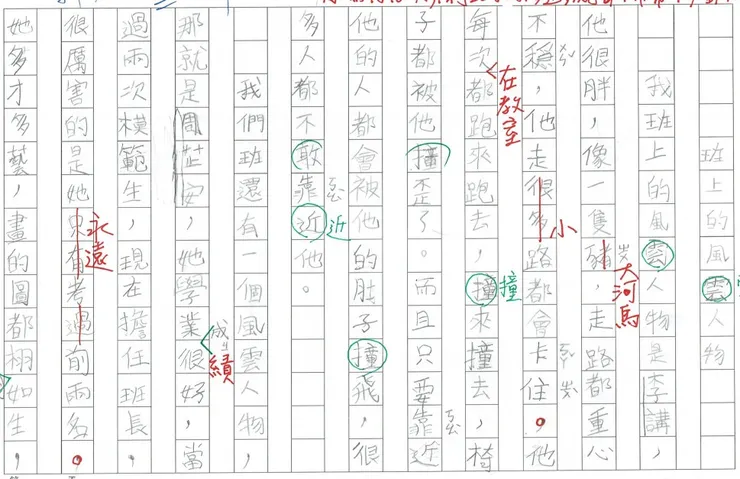 班上的風雲人物
我班上的風雲人物是李講,
他很胖,像一隻豬,走路都重心,
大河馬
不穩,他走很多路都會卡住。他
小
每次都跑來跑去,撞來撞去,椅
在教室
撞
子都被他撞歪了。而且只要靠近
他的人都會被他的肚子撞飛,很
多人都不敢靠近他。
近
我們班還有一個風雲人物,
那就是周芷安,她學業很好,當
成績
過兩次模範生,現在擔任班長,
很厲害的是她有考過前兩名。
永遠
她多才多藝,畫的圖都栩如生,